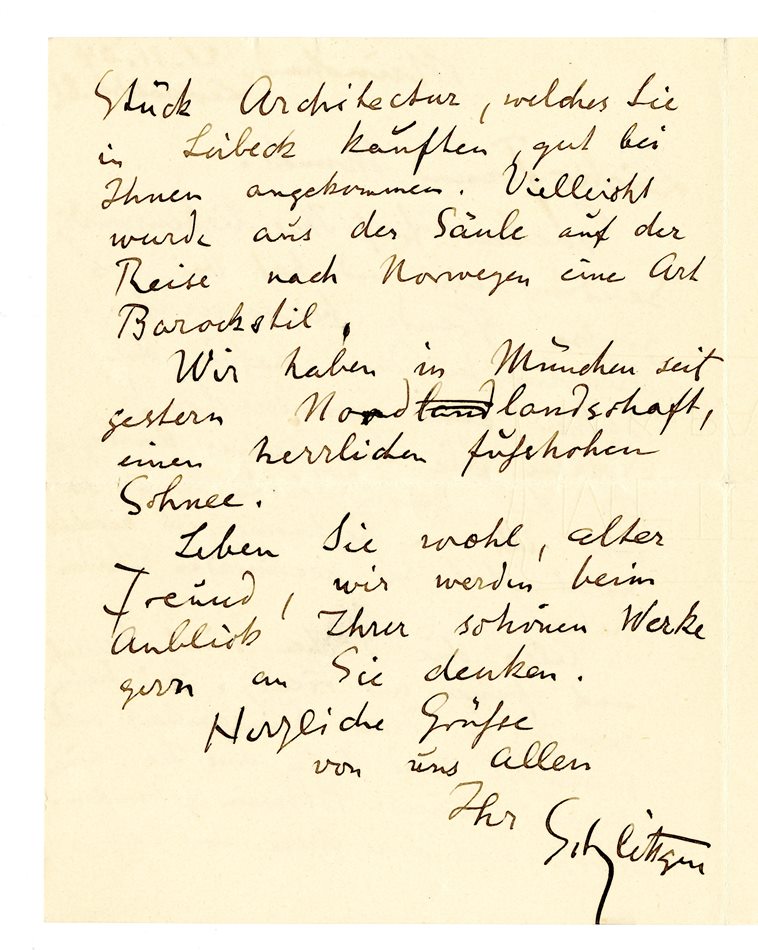 Stück Architectur, welches Sie
in Lübeck kauften, gut bei
Ihnen angekommen. Vielleicht
wurde aus der Säule auf der
Reise nach Norwegen eine Art
Barockstil.
Wir haben in München seit
gestern Nordlandlandschaft,
einen herrlichen fußhohen
Schnee.
Leben Sie wohl, alter
Freund, wir werden beim
Anblick Ihrer schönen Werke
gern an Sie denken.
Herzliche Grüße
von uns allen
Ihr Schlittgen